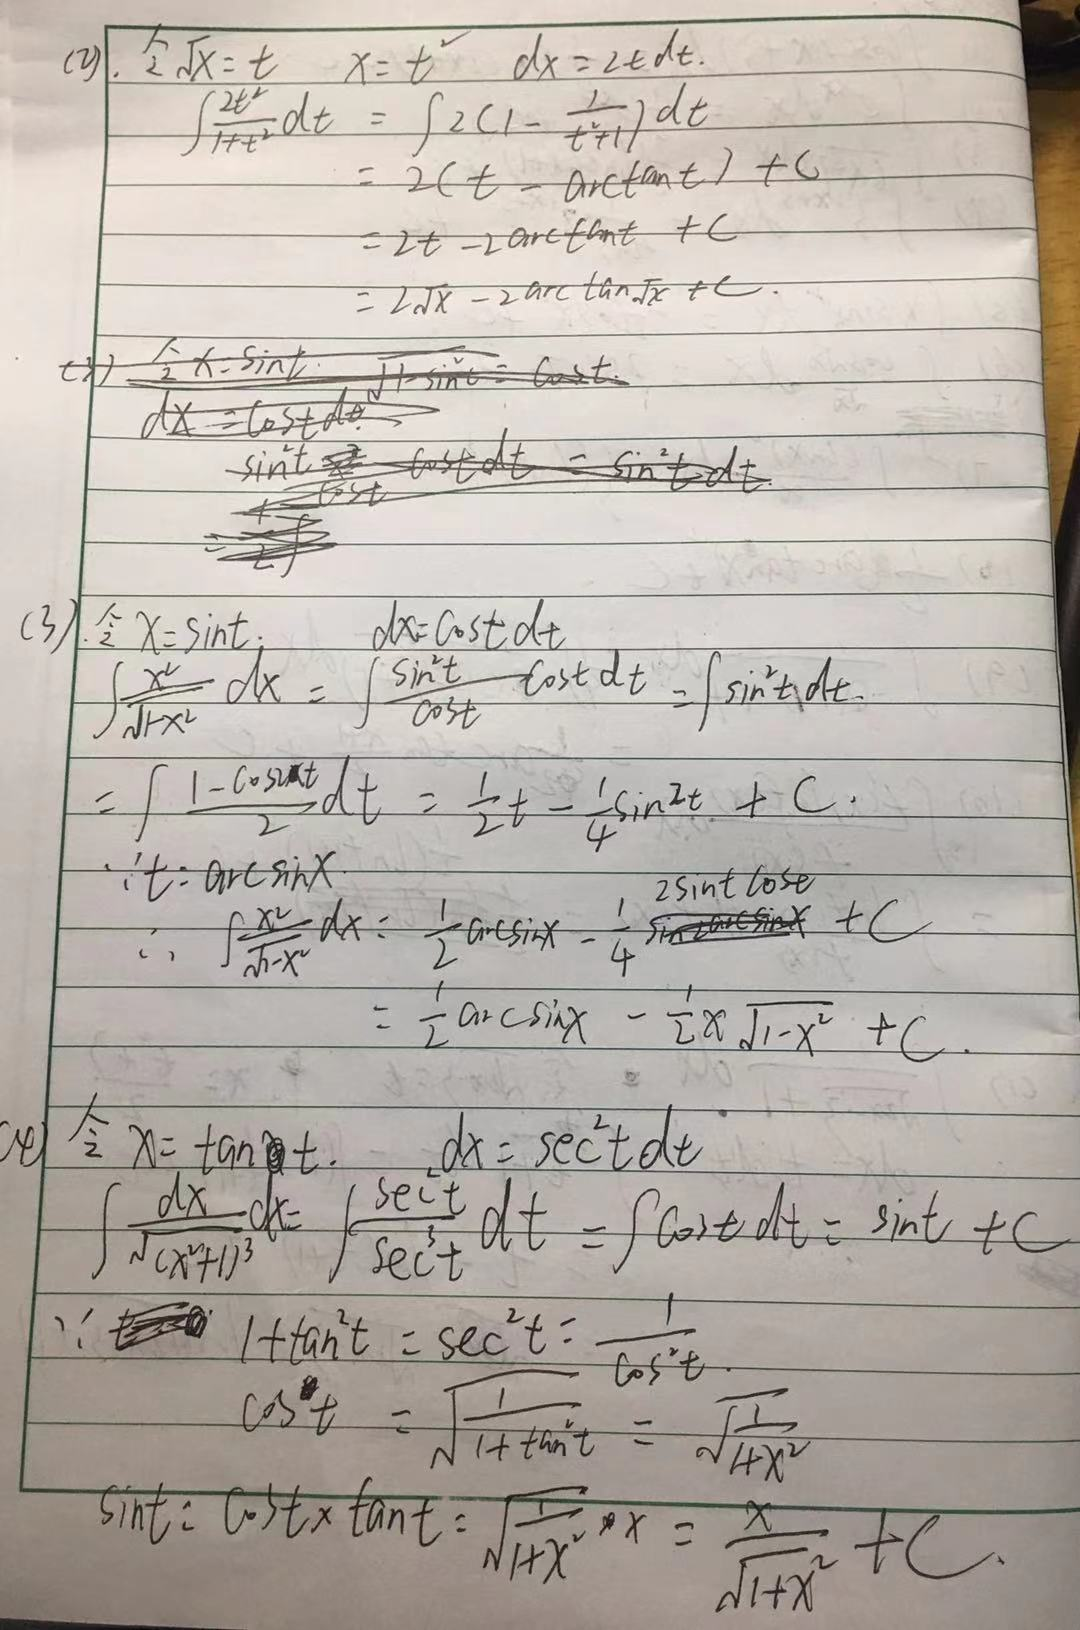 (2). 令√x = t  x = t²  dx = 2t dt.
∫ 2t²/(1+t²) dt = ∫ 2(1 - 1/(t²+1)) dt
= 2(t - arctan t) + C
= 2t - 2arctan t + C
= 2√x - 2arc tan√x + C.
(3) 令 x = sint. √(1-sin²t) = cost.
dx = cost dt
sin²t/cost cost dt = sin²t dt.
(3). 令 x = sint.  dx = cost dt
∫ x²/√(1-x²) dx = ∫ sin²t/cost cost dt = ∫ sin²t dt.
= ∫ (1-cos2t)/2 dt = 1/2 t - 1/4 sin2t + C.
∵ t = arcsinx.
∴ ∫ x²/√(1-x²) dx = 1/2 arcsinx - 1/4 2sint cost + C
= 1/2 arcsinx - 1/2 x √(1-x²) + C.
(4) 令 x = tan t.  dx = sec²t dt
∫ dx/√(x²+1)³ dx = ∫ sec²t/sec³t dt = ∫ cost dt = sint + C
∵ 1+tan²t = sec²t = 1/cos²t.
cos t = √(1/(1+tan²t)) = √(1/(1+x²))
sint = cost × tan t = √(1/(1+x²)) · x = x/√(1+x²) + C.